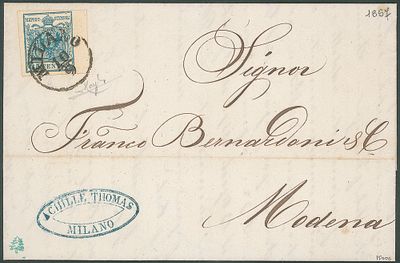 1857
MILANO
CENTES
Signor
Franco Bernardoni & C.
Modena
ACHILLE THOMAS
MILANO